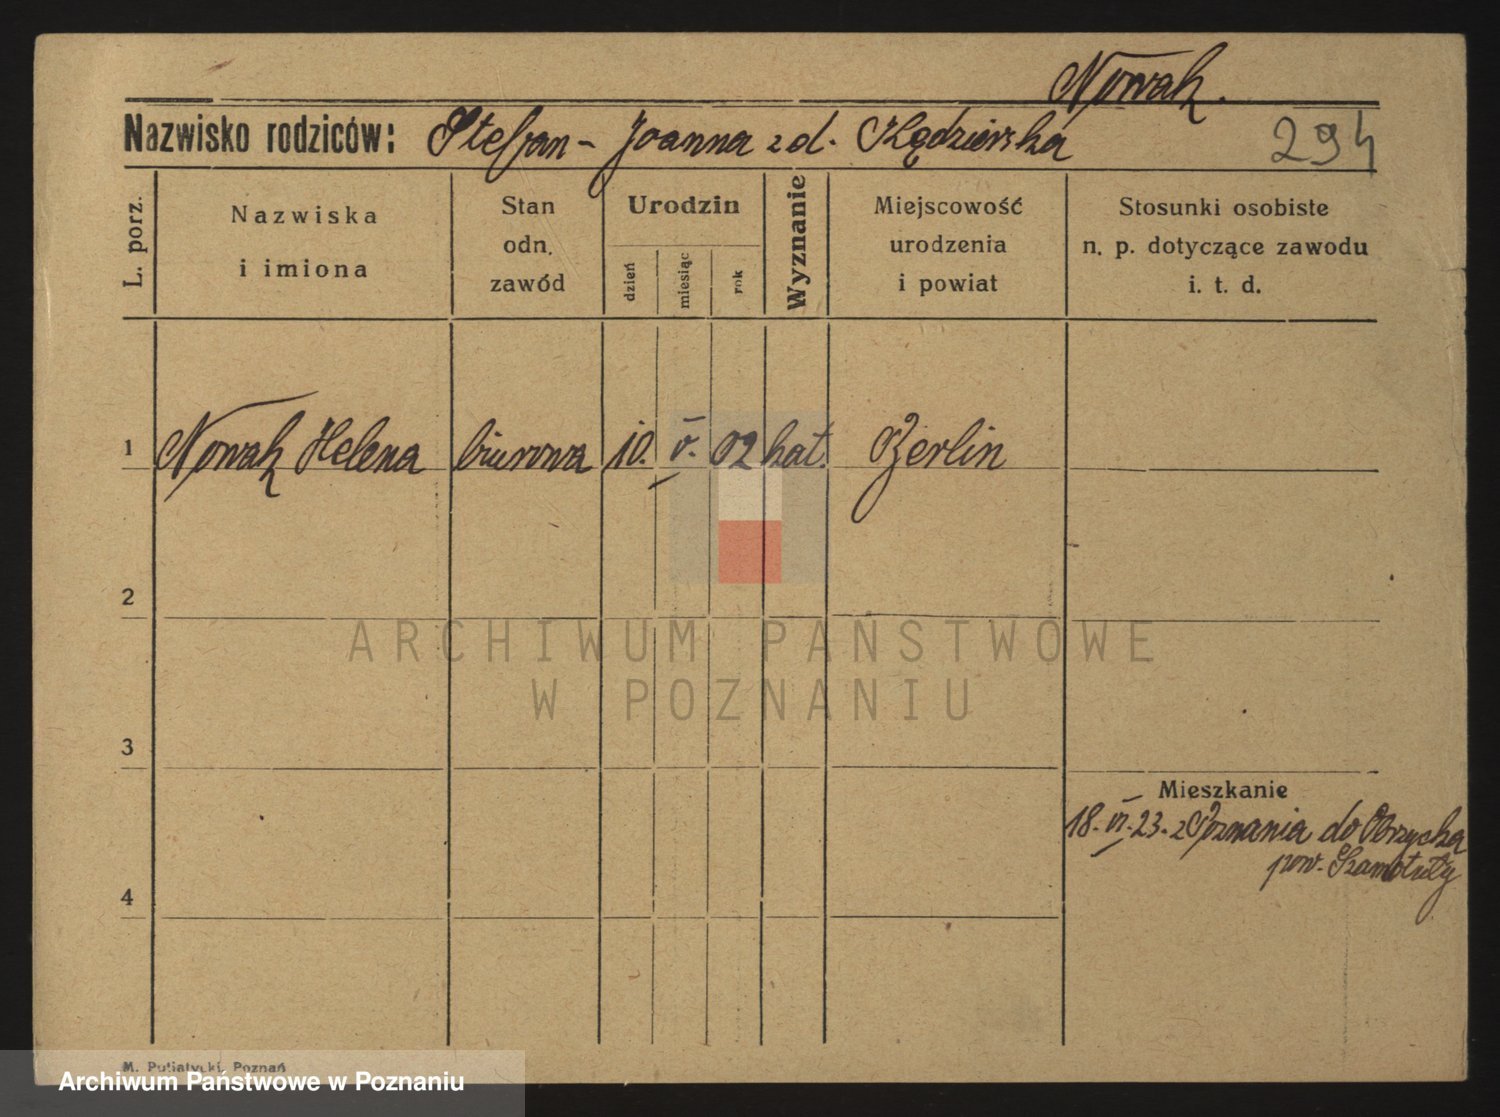 Nowak.
Nazwisko rodziców: Stefan - Joanna z d. Kędzierska
294
L. porz.
Nazwiska
i imiona
Stan
odn.
zawód
Urodzin
dzień
miesiąc
rok
Wyznanie
Miejscowość
urodzenia
i powiat
Stosunki osobiste
n. p. dotyczące zawodu
i. t. d.
1 Nowak Helena biurowa 10. V. 02 kat. Berlin
2
ARCHIWUM PAŃSTWOWE
W POZNANIU
3
Mieszkanie
18. VI. 23. z Poznania do Obrzycka
pow. Szamotuły
4
M. Putiatycki, Poznań
Archiwum Państwowe w Poznaniu